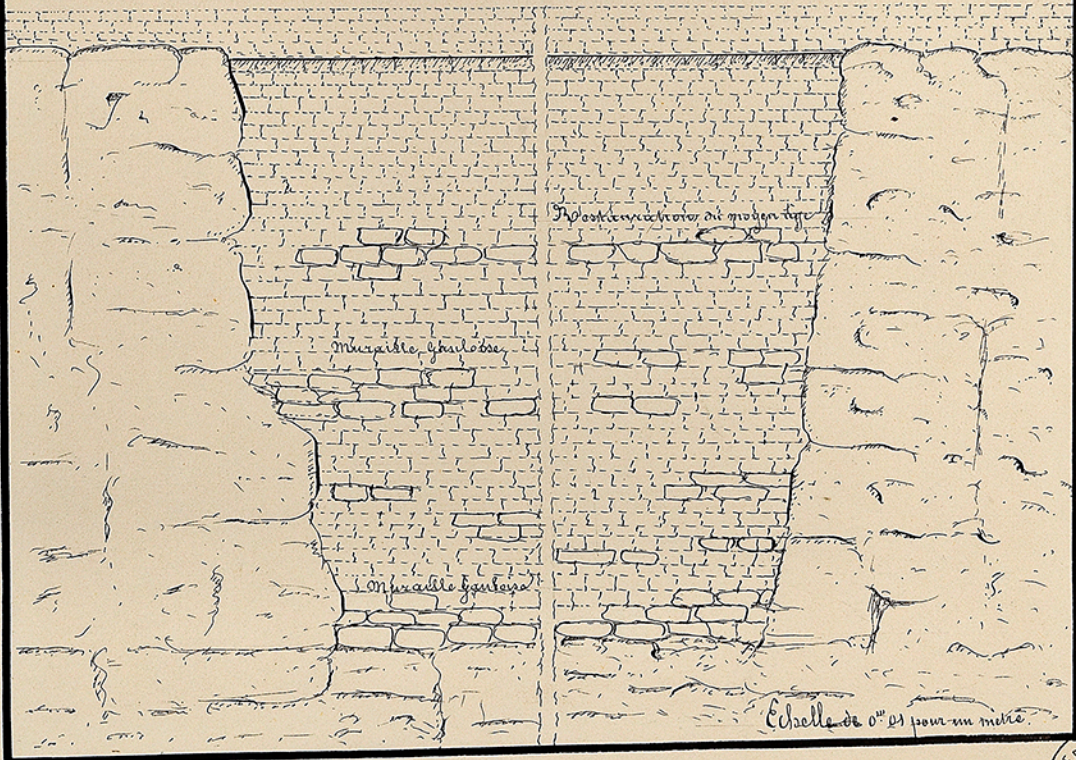 Restaurations du moyen âge
Muraille Gauloise
Muraille Gauloise
Echelle de 0m 01 pour un metre